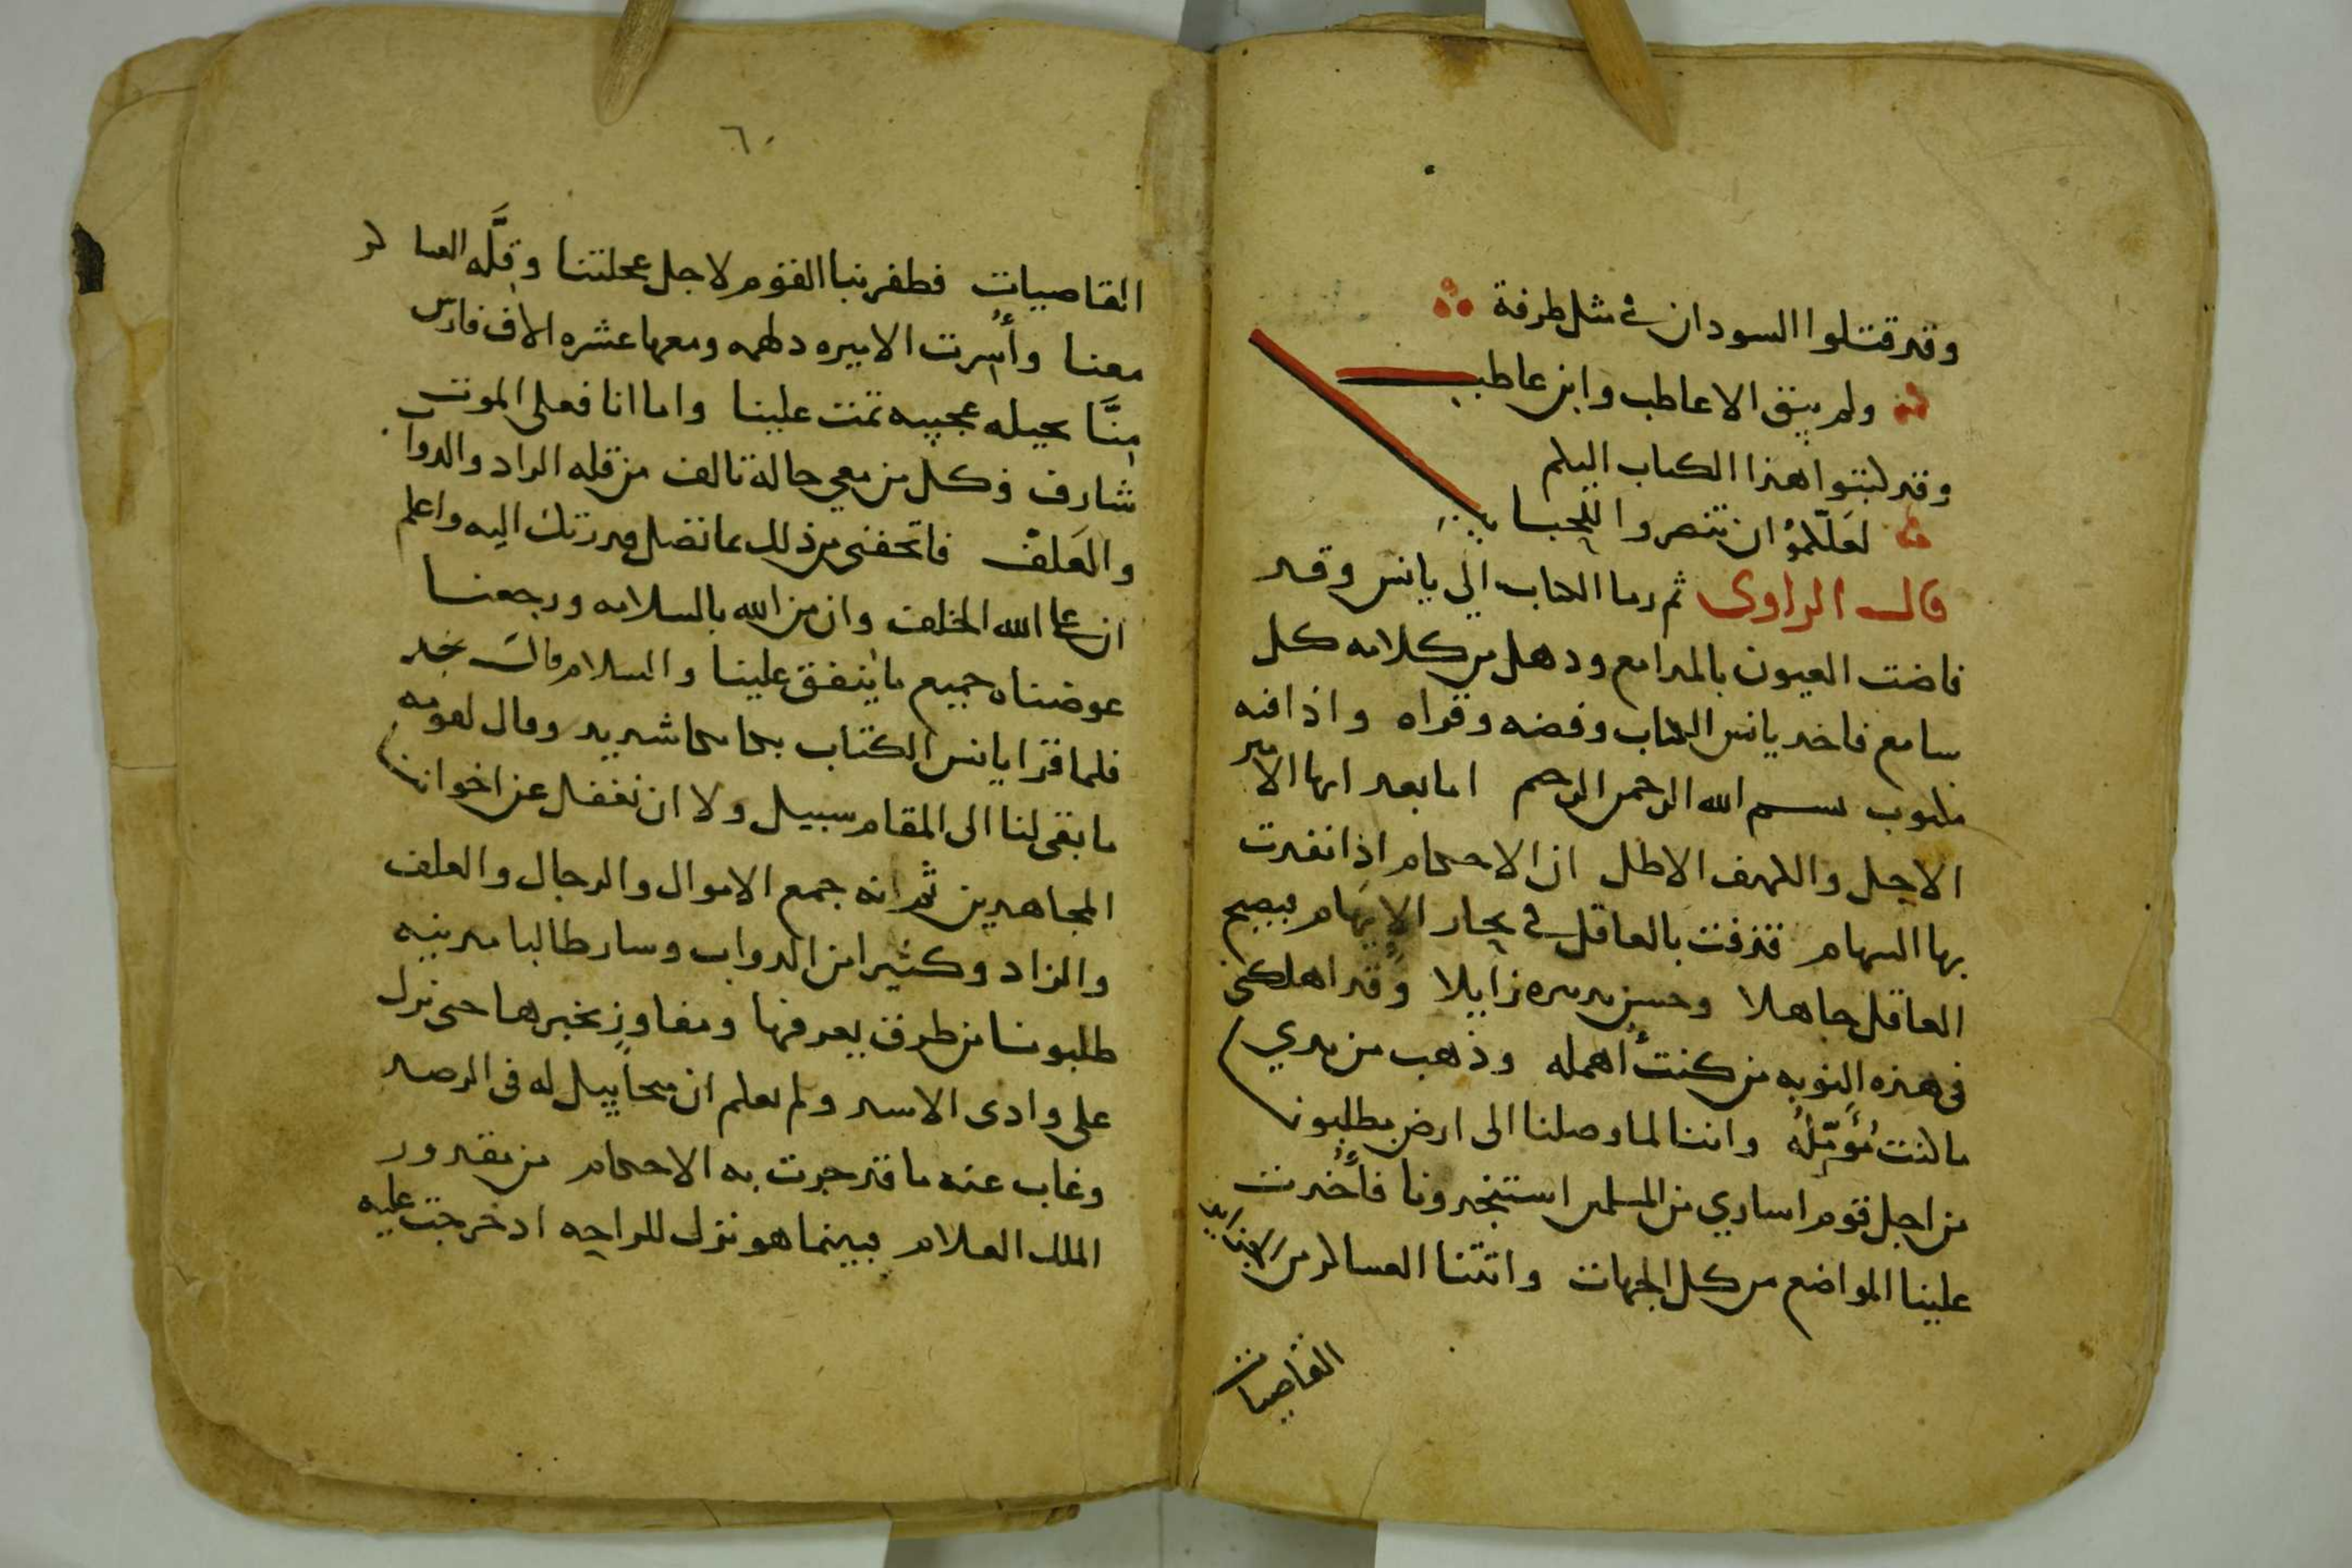 وقد قتلوا السودان في مثل طرفة
ولم يبق الا عاطب وابن عاطب
وقد كتبوا هذا الكتاب اليكم
لعلكموا ان تنصروا
قال الراوى ثم رما الكتاب الي يانس وقد
فاضت العيون بالمدامع ودهل من كلامه كل
سامع فاخد يانس الكتاب وفضه وقراه واذا فيه
مكتوب بسم الله الرحمن الرحيم اما بعد ايها الامير
الاجل والكهف الاطل ان الاحكام اذا نفدت
بها السهام قدفت بالعاقل في بحار الايهام فيصبح
العاقل جاهلا وحسن تدبيره زايلا وقد اهلكنى
في هذه النوبه من كنت أهمله وذهب من يدي
ما كنت أؤمّله واننا لما وصلنا الى ارض مطلبون
من اجل قوم اساري من المسلمين استنجدونا فأخدت
علينا المواضع من كل الجهات واتتنا العساكر من
القاصيات
٦٠
القاصيات فظفر بنا القوم لاجل عجلتنا وقلَّه العساكر
معنا وأسرت الاميره دلهمه ومعها عشره الاف فارس
منَّا بحيله عجيبه تمت علينا واما انا فعلى الموت
شارف وكل من معي حالة تالف من قله الزاد والدوا
والعلف فاتحفنى من ذلك بما تصل قدرتك اليه واعلم
ان على الله الخلف وان من الله بالسلامه ورجعنا
عوضناه جميع ما ينفق علينا والسلام قال نجد
فلما قرا يانس الكتاب بكا بكاا شديد وقال لقومه
ما بقى لنا الى المقام سبيل ولا ان نغفل عن اخواننا
المجاهدين ثم انه جمع الاموال والرجال والعلف
والزاد وكثيرا من الدواب وسار طالبا مدينه
طلبونسا من طرق يعرفها ومفاوز يخبرها حتى نزل
على وادى الاسد ولم يعلم ان ميحاييل له فى الرصد
وغاب عنه ما قد جرت به الاحكام من مقدور
الملك العلام فبينما هو نزل للراحه اد خرجت عليه